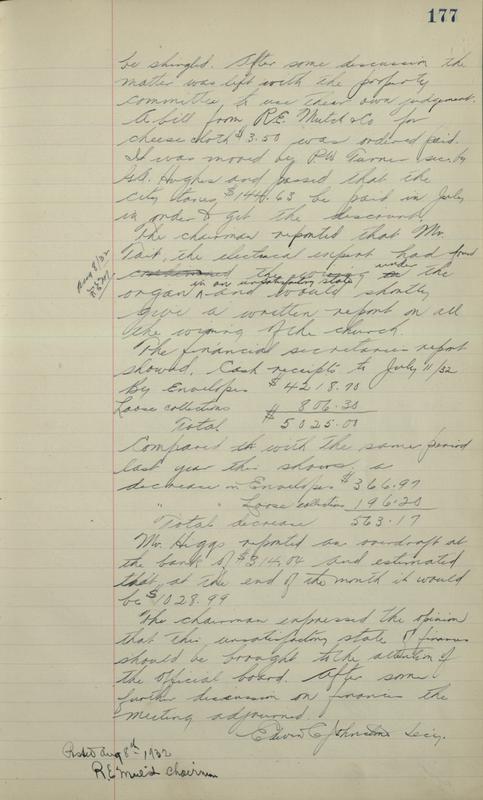 177
be shingled. After some discussion the
matter was left with the property
committee, to use their own judgement.
A bill from R.E. Mutch & Co for
cheese cloth $3.50 was ordered paid.
It was moved by P.W. Turner sec. by
Hughes and passed that the
city taxes $144.63 be paid in July
in order to get the discount
The chairman reported that Mr.
Tait, the electrical expert had found
the wiring under the
in an unsatisfactory state
organ and would shortly
give a written report on all
the wiring of the church.
The financial secretaries report
showed. Cash receipts to July 11/32
By Envelopes $4218.70
Loose collections $806.30
Total $5025.00
Compared with the same period
last year this shows a
decrease in Envelopes $366.97
" " Loose collections 196.20
Total decrease 563.17
Mr. Higgs reported an overdraft at
the bank of $314.04 and estimated
that at the end of the month it would
be $1028.99
The chairman expressed the opinion
that this unsatisfactory state of finances
should be brought to the attention of
the Official board. After some
further discussion on finances the
meeting adjourned.
Edwin C Johnston Secy.
Aug 8/32
R.E.M.
Aug 8th 1932
R.E. chairman